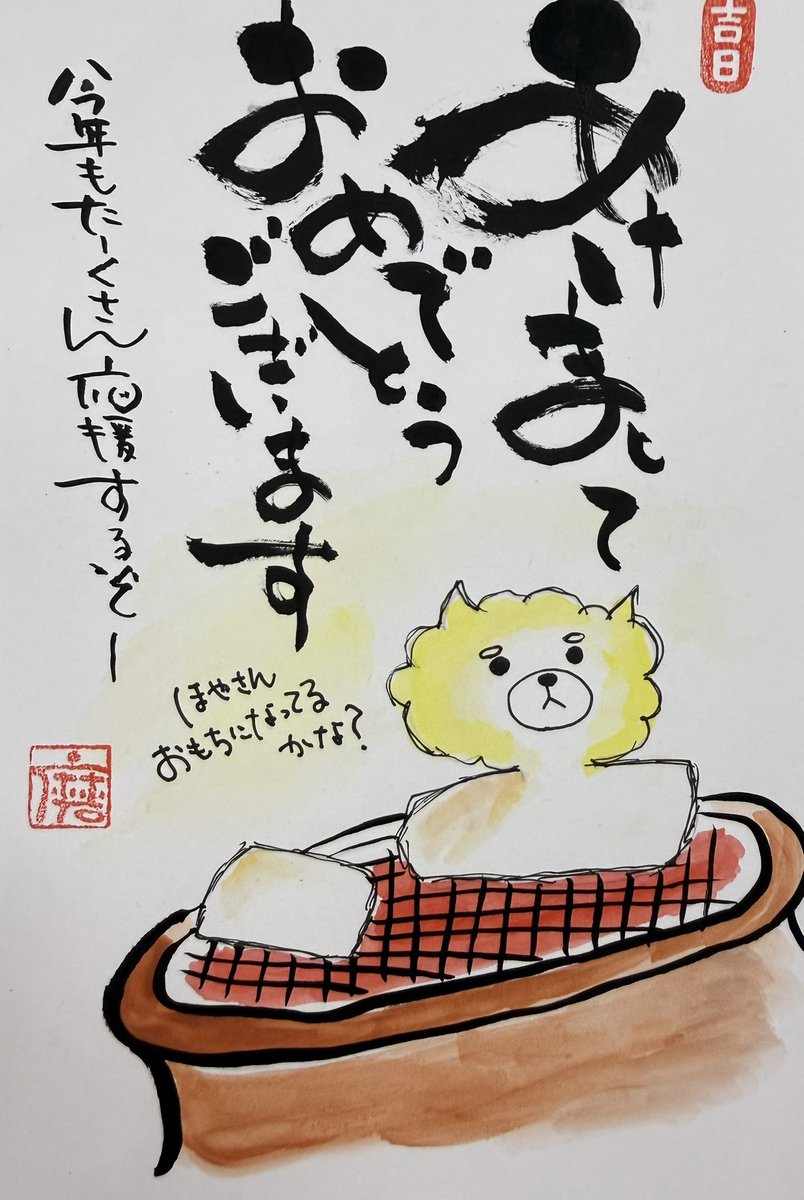 吉日
あけまして
おめでとう
ございます
今年もたーくさん応援するぞー
ほやさん
おもちになってる
かな?